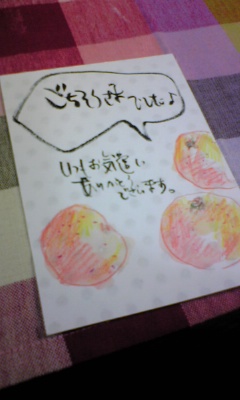 ごちそう様でした♪
いつもお気遣い
ありがとうございます。